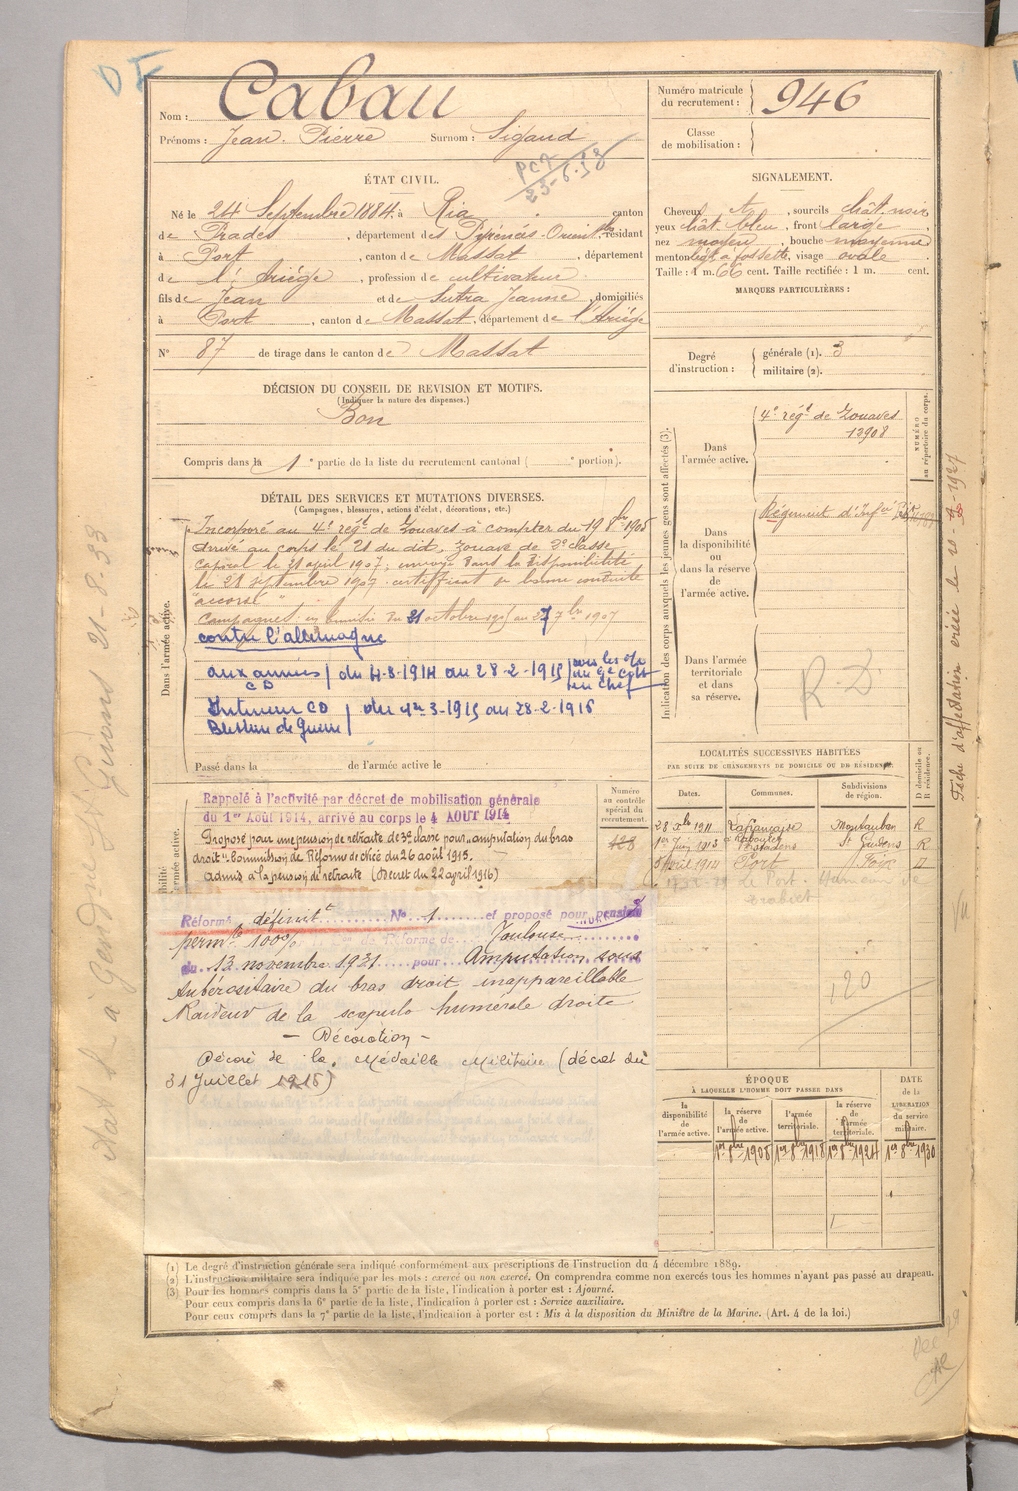 Nom : Cabau
Prénoms : Jean Pierre Surnom : Sigaud
PC7
23-6-53
Numéro matricule du recrutement : 946
Classe de mobilisation :
ÉTAT CIVIL.
Né le 24 Septembre 1884 à Ria canton
de Prades, département des Pyrénées-Orientles, résidant
à Port, canton de Massat, département
de l'Ariège, profession de cultivateur
fils de Jean et de Sutra Jeanne, domiciliés
à Port, canton de Massat, département de l'Ariège
N° 87 de tirage dans le canton de Massat
SIGNALEMENT.
Cheveux, sourcils chât. noir
yeux chât. bleu, front large,
nez moyen, bouche moyenne
menton à fossette, visage ovale.
Taille : 1 m. 66 cent. Taille rectifiée : 1 m. cent.
MARQUES PARTICULIÈRES :
Degré d'instruction : générale (1). 3
militaire (2).
DÉCISION DU CONSEIL DE REVISION ET MOTIFS.
(Indiquer la nature des dispenses.)
Bon
Compris dans la 1e partie de la liste du recrutement cantonal ( e portion).
DÉTAIL DES SERVICES ET MUTATIONS DIVERSES.
(Campagnes, blessures, actions d'éclat, décorations, etc.)
Dans l'armée active.
Incorporé au 4e régt de Zouaves à compter du 19 8bre 1905
Arrivé au corps le 21 du dit, zouave de 2e classe
Caporal le 21 avril 1907; envoyé dans la disponibilité
le 21 septembre 1907. certifficat de bonne conduite
"accordé"
contre l'allemagne
aux armées CD du 4-8-1914 au 28-2-1915
Intérieur CD du 1er 3-1915 au 28-2-1916
Blessure de Guerre
Passé dans la de l'armée active le
Indication des corps auxquels les jeunes gens sont affectés (3).
NUMÉRO au répertoire du corps.
Dans l'armée active.
4e régt de Zouaves
12908
Dans la disponibilité ou dans la réserve de l'armée active.
Régiment d'Inf
Dans l'armée territoriale et dans sa réserve.
R. D.
Rappelé à l'activité par décret de mobilisation générale
du 1er Août 1914, arrivé au corps le 4 AOUT 1914
Proposé pour une pension de retraite de 3e classe pour amputation du bras
droit. Commission de Réforme de Nice du 26 août 1915.
Admis à la pension de retraite (Décret du 22 avril 1916)
Numéro au contrôle spécial du recrutement.
428
Réformé définitt N° 1 et proposé pour pension
permte 100% de Réforme de Toulouse
du 13 novembre 1931 pour Amputation sous
tubérositaire du bras droit inappareillable
Raideur de la scapulo humérale droite
— Décoration —
Décoré de la Médaille Militaire (décret du
31 Juillet 1915)
LOCALITÉS SUCCESSIVES HABITÉES
PAR SUITE DE CHANGEMENTS DE DOMICILE OU DE RÉSIDENCE.
D domicile ou R résidence.
Dates. Communes. Subdivisions de région.
28 Xbre 1911 Lafrançaise Montauban R
1er Juin 1913 St Gaudens R
5 Avril 1914 Port Foix D
Le Port. Hameau de
120
ÉPOQUE
À LAQUELLE L'HOMME DOIT PASSER DANS
la disponibilité de l'armée active.
la réserve de l'armée active.
l'armée territoriale.
la réserve de l'armée territoriale.
DATE de la LIBÉRATION du service militaire.
1er 8bre 1908 1er 8bre 1918 1er 8bre 1924 1er 8bre 1930
(1) Le degré d'instruction générale sera indiqué conformément aux prescriptions de l'instruction du 4 décembre 1889.
(2) L'instruction militaire sera indiquée par les mots : exercé ou non exercé. On comprendra comme non exercés tous les hommes n'ayant pas passé au drapeau.
(3) Pour les hommes compris dans la 5e partie de la liste, l'indication à porter est : Ajourné.
Pour ceux compris dans la 6e partie de la liste, l'indication à porter est : Service auxiliaire.
Pour ceux compris dans la 7e partie de la liste, l'indication à porter est : Mis à la disposition du Ministre de la Marine. (Art. 4 de la loi.)
Fiche d'affectation créée le